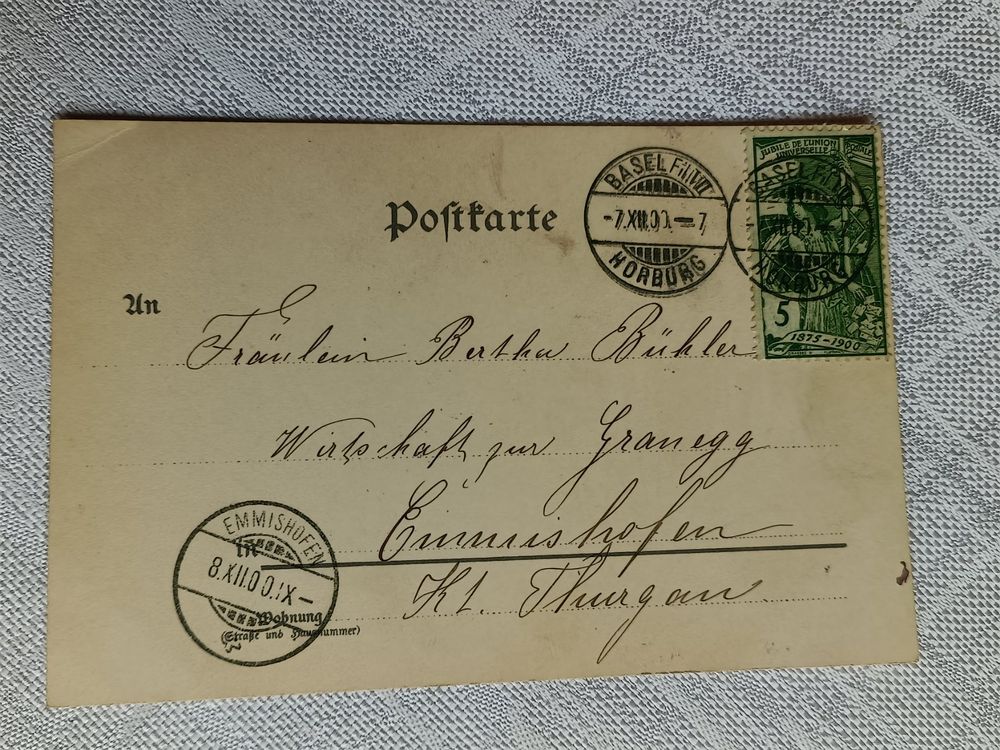 Postkarte
BASEL FIL.VII
-7.XII.00.-7
HORBURG
BASEL FIL.VII
HORBURG
JUBILÉ DE L'UNION
UNIVERSELLE POSTALE
5
1875-1900
An
Fräulein Bertha Bühler
Wirtschaft zur Granegg
Emmishofen
Kt. Thurgau
EMMISHOFEN
in
8.XII.00.IX-
Wohnung
(Straße und Hausnummer)